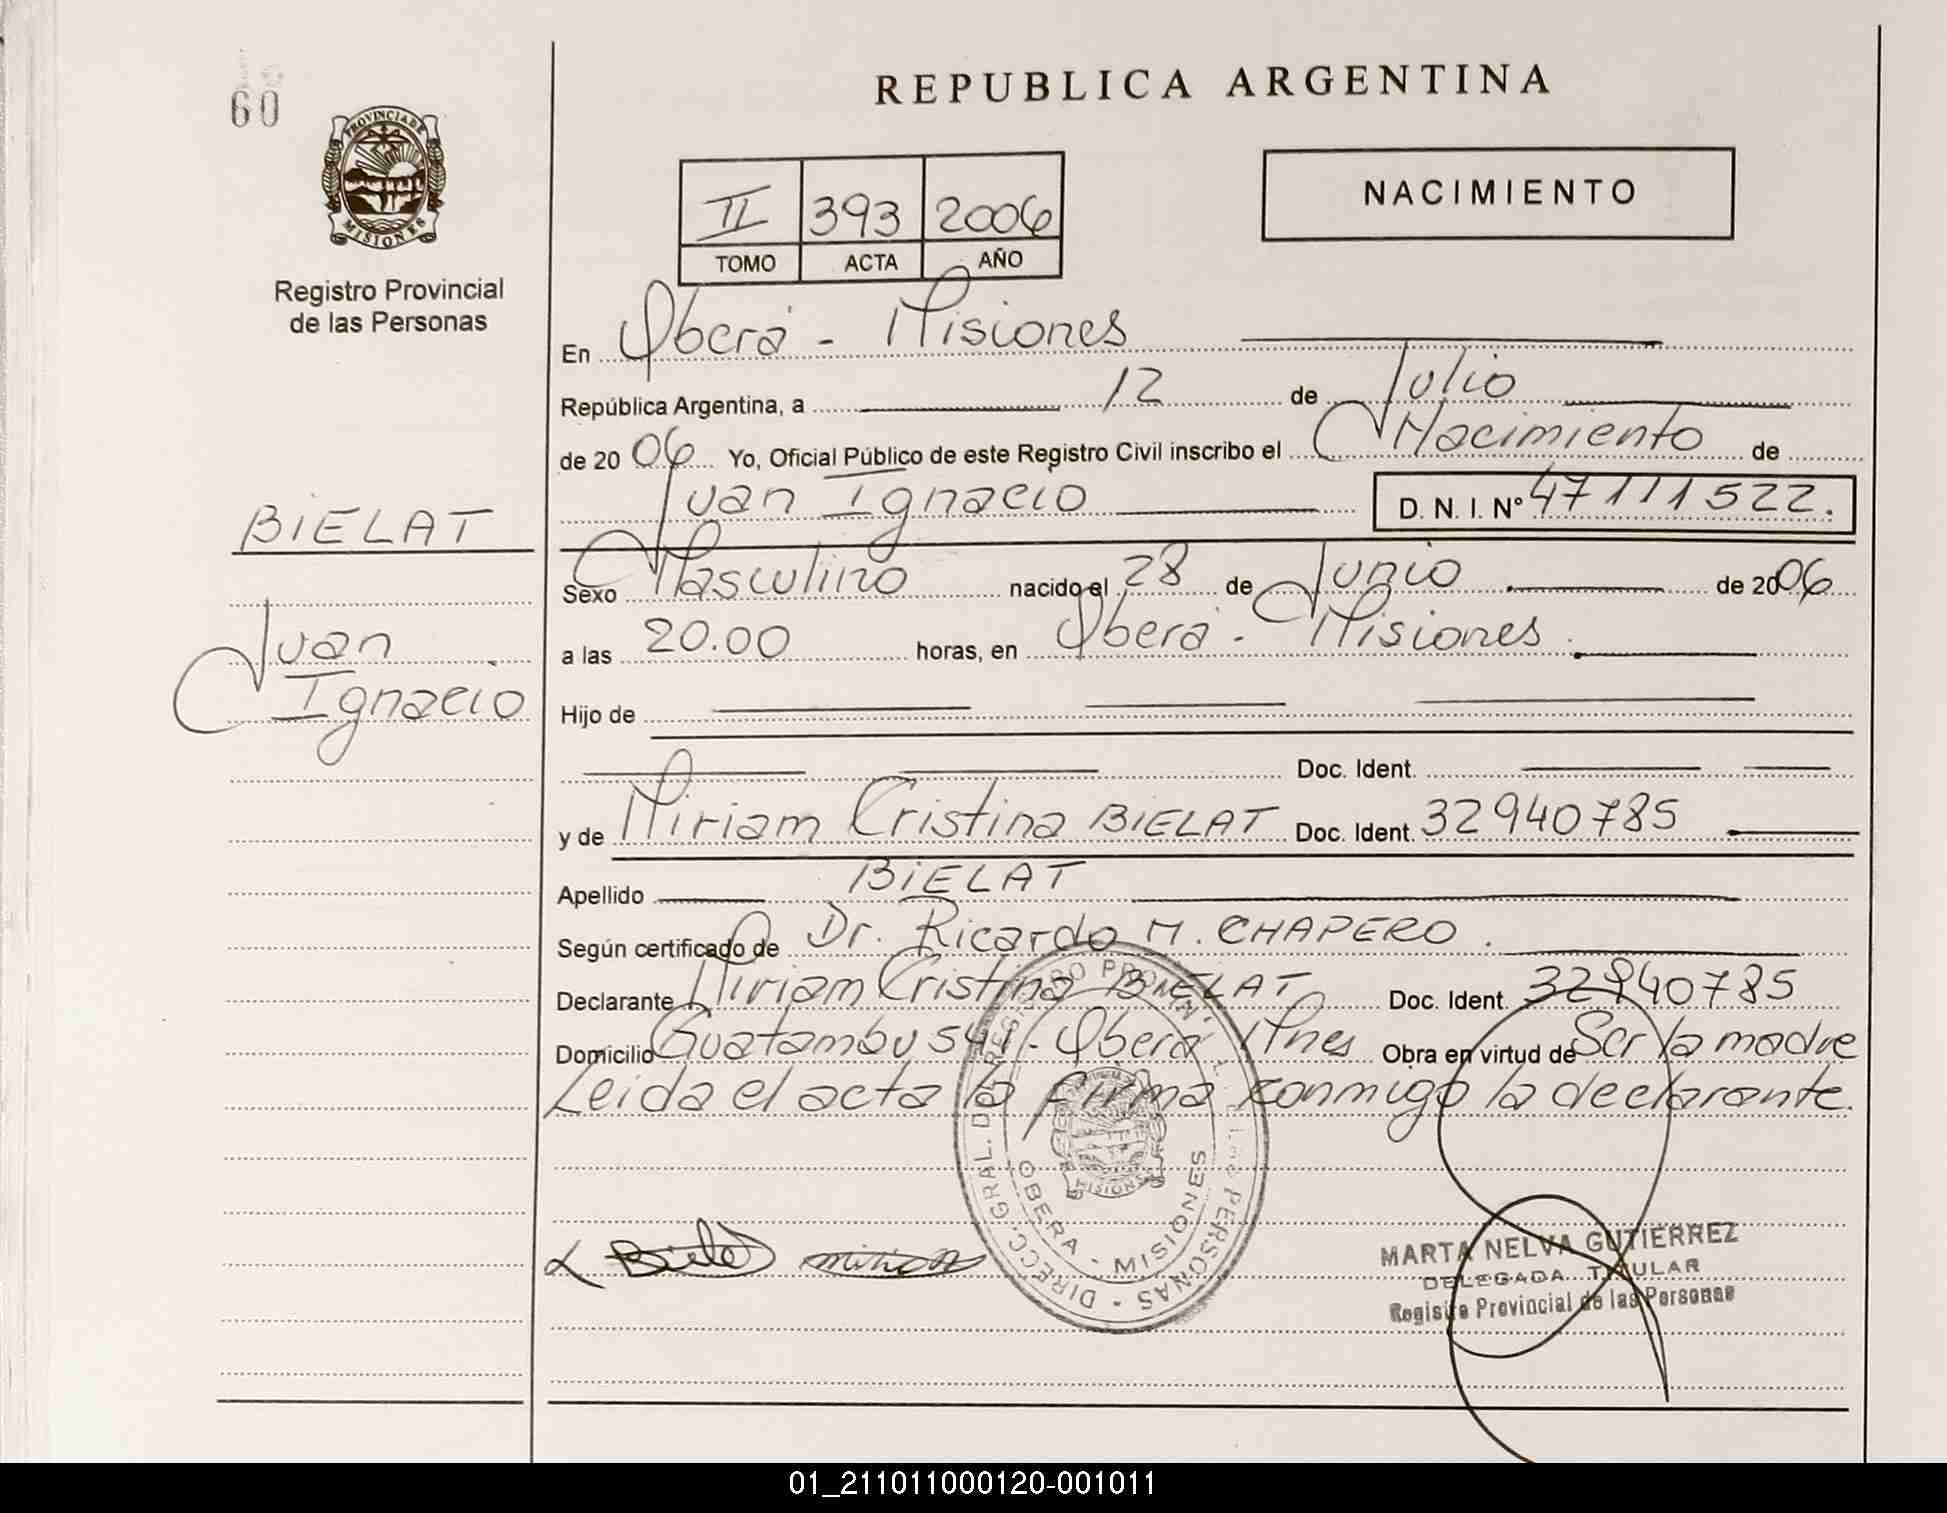 60
PROVINCIA DE
MISIONES
Registro Provincial
de las Personas
BIELAT
Juan
Ignacio
REPUBLICA ARGENTINA
II 393 2006
TOMO ACTA AÑO
NACIMIENTO
En Oberá - Misiones
República Argentina, a 12 de Julio
de 2006 Yo, Oficial Público de este Registro Civil inscribo el Nacimiento de
Juan Ignacio D. N. I. Nº 47111522.
Sexo Masculino nacido el 28 de Junio de 2006
a las 20.00 horas, en Oberá - Misiones.
Hijo de
Doc. Ident.
y de Miriam Cristina BIELAT Doc. Ident. 32940785
Apellido BIELAT
Según certificado de Dr. Ricardo M. CHAPERO.
Declarante Miriam Cristina BIELAT Doc. Ident. 32940785
Domicilio Guatambu 541 - Oberá Mnes Obra en virtud de Ser la madre
Leida el acta la firma conmigo la declarante.
DIRECC. GRAL. DEL REGISTRO PROVINCIAL DE LAS PERSONAS
OBERA - MISIONES
MISIONES
Bielat Miriam
MARTA NELVA GUTIERREZ
DELEGADA TITULAR
Registro Provincial de las Personas
01_211011000120-001011